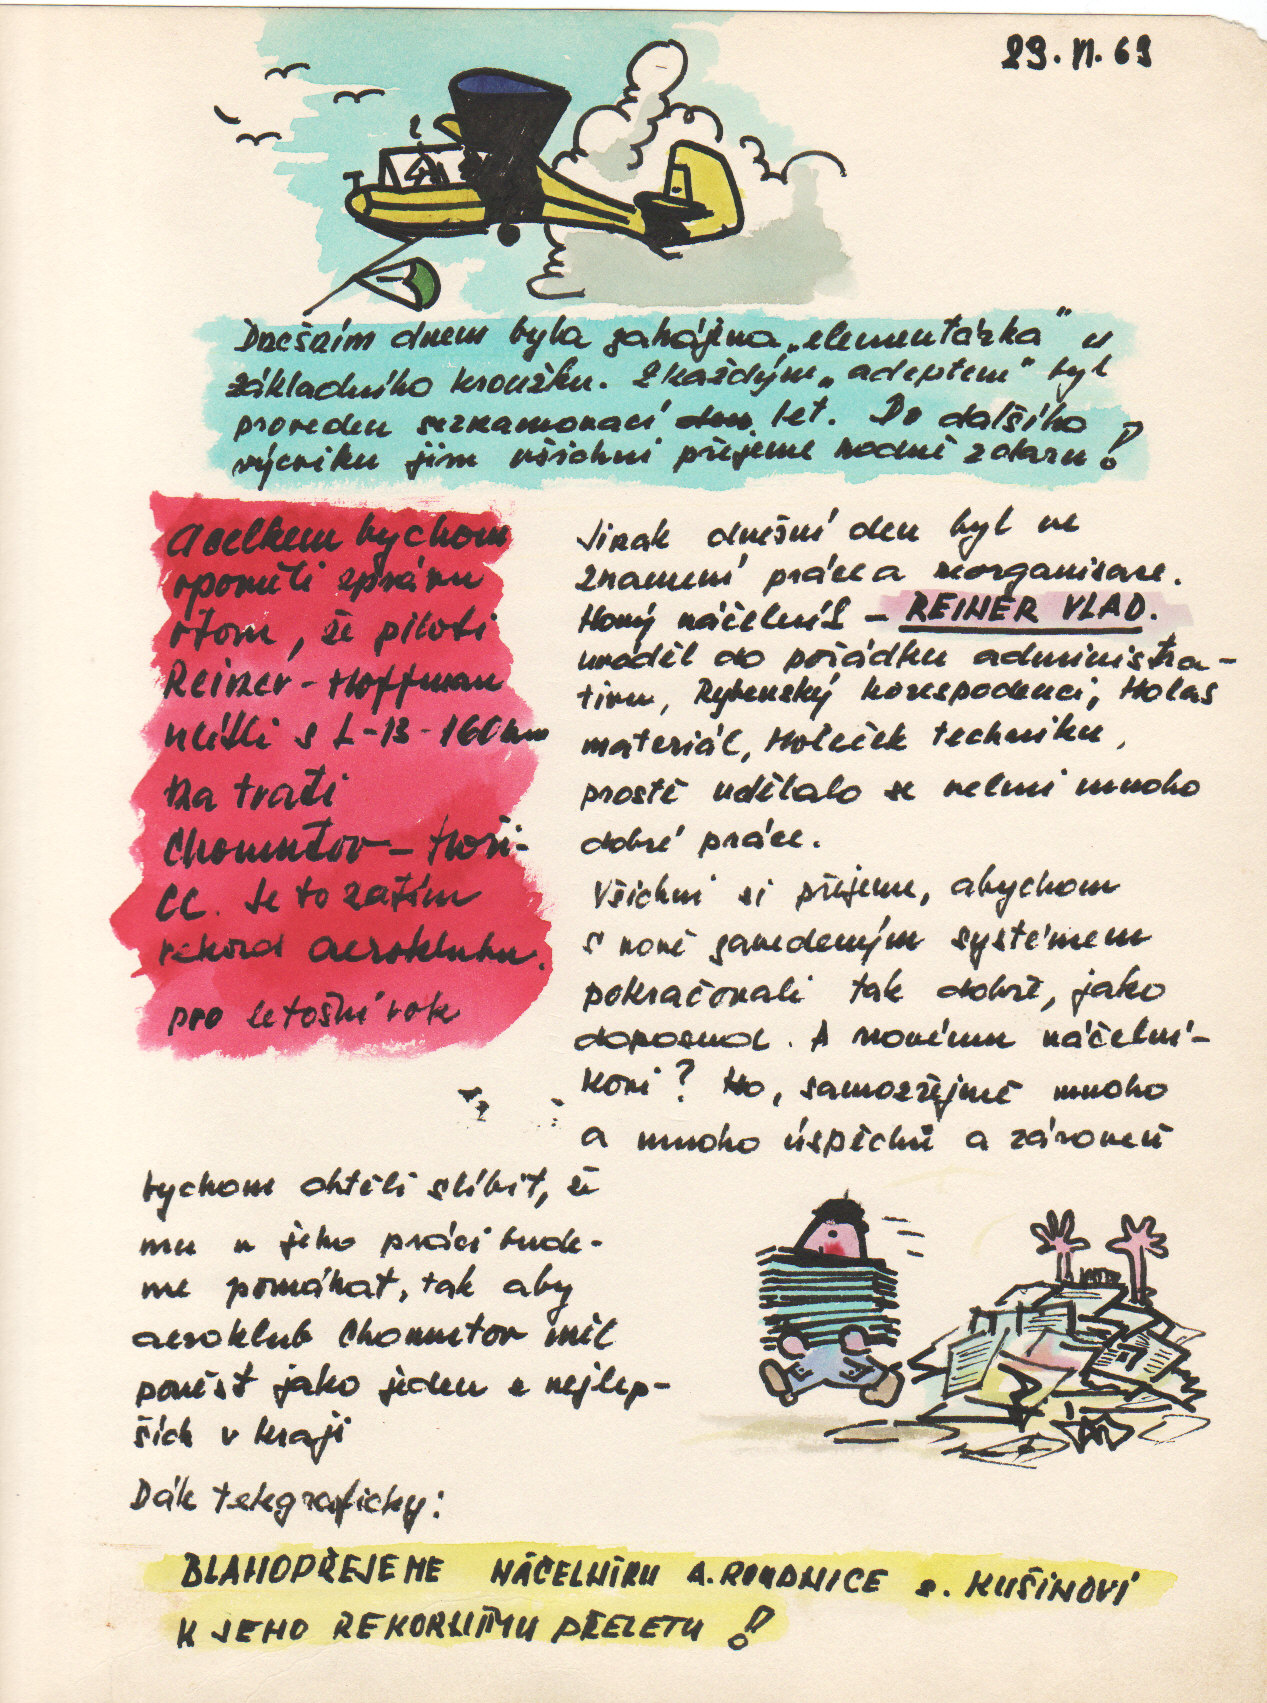 29. VI. 69
Dnešním dnem byla zahájena „elementárka" v
základního kroužku. S každým „adeptem" byl
proveden seznamovací let. Do dalšího
výcviku jim všichni přejeme hodně zdaru!
A celkem bychom
opoměli zprávu
o tom, že piloti
Reiner - Hoffman
ulítli s L-13 - 160 km
na trati
Chomutov - Hoři-
ce. Je to zatím
rekord aeroklubu.
pro letošní rok
Jinak dnešní den byl ve
znamení práce a reorganisace.
Nový náčelník - REINER VLAD.
uváděl do pořádku administra-
tivu, Rybenský korespodenci, Holas
materiál, Holeček techniku,
prostě udělalo se velmi mnoho
dobré práce.
Všichni si přejeme, abychom
s nově zavedeným systémem
pokračovali tak dobře, jako
doposud. A novému náčelní-
kovi? No, samozřejmě mnoho
a mnoho úspěchů a zároveň
bychom chtěli slíbit, že
mu v jeho práci bude-
me pomáhat, tak aby
aeroklub Chomutov měl
pověst jako jeden z nejlep-
ších v kraji
Dák telegraficky:
BLAHOPŘEJEME NÁČELNÍKU A. ROUDNICE s. KUŠINOVI
K JEHO REKORNÍMU PŘELETU!